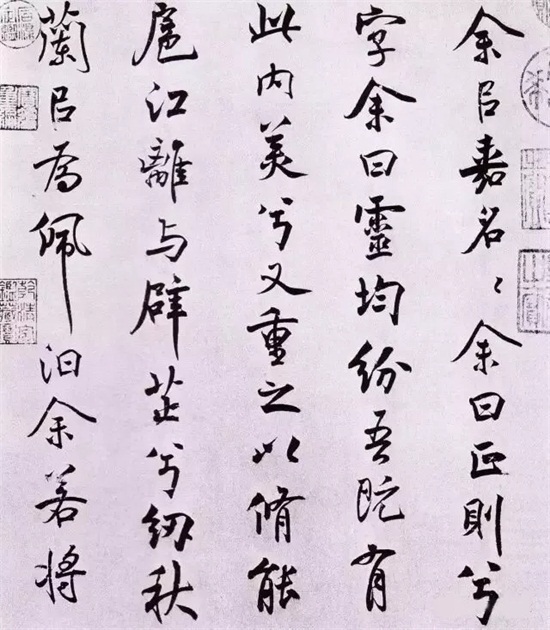 余以嘉名〻余曰正則兮
字余曰靈均紛吾既有
此内美兮又重之以脩能
扈江離与辟芷兮紉秋
蘭以為佩汩余若将